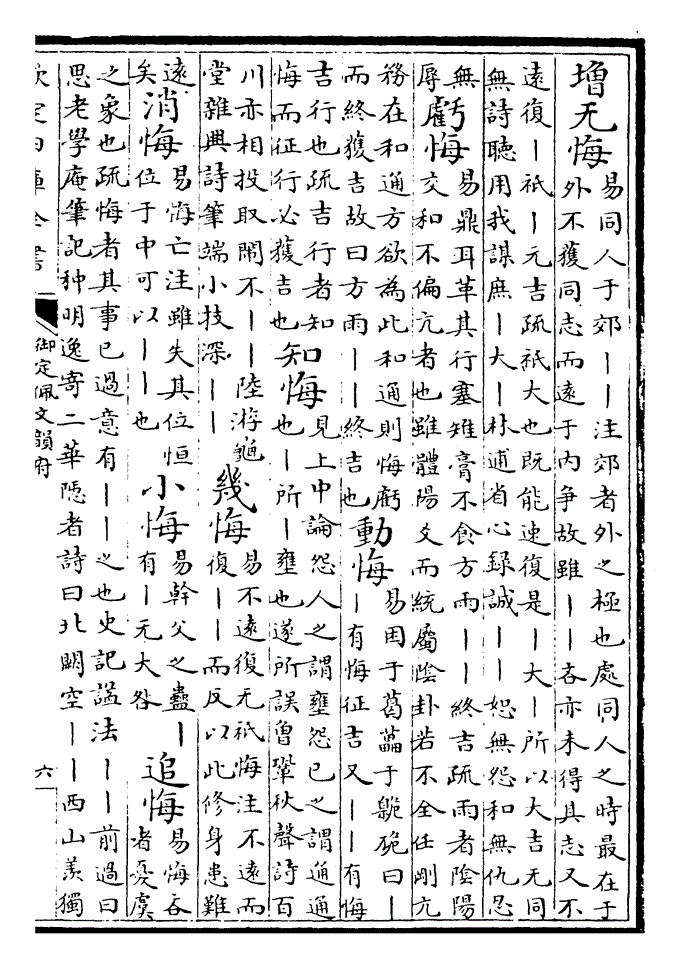 增无悔易同人于郊丨丨注郊者外之極也處同人之時最在于
外不獲同志而遠于内争故雖丨丨吝亦未得其志又不
遠復丨祇丨元吉疏祇大也既能速復是丨大丨所以大吉无同
無詩聽用我謀庶丨大丨朴逋省心録誠丨丨恕無怨和無仇忍
無
辱
虧悔易鼎耳革其行塞雉膏不食方雨丨丨終吉疏雨者陰陽
交和不偏亢者也雖體陽爻而統屬陰卦若不全任剛亢
務在和通方欲為此和通則悔虧
而終獲吉故曰方雨丨丨終吉也
動悔易困于葛藟于臲卼曰丨
丨有悔征吉又丨丨有悔
吉行也疏吉行者知
悔而征行必獲吉也
知悔見上中論怨人之謂壅怨已之謂通通
也丨所丨壅也遂所誤曾鞏秋聲詩百
川亦相投取閙不丨丨陸游龜
堂雜興詩筆端小技深丨丨
幾悔易不遠復无祇悔注不遠而
復丨丨而反以此修身患難
遠
矣
消悔易悔亡注雖失其位恒
位于中可以丨丨也
小悔易幹父之蠱丨
有丨无大咎
追悔易悔吝
者憂虞
之象也疏悔者其事已過意有丨丨之也史記諡法丨丨前過曰
思老學庵筆記种明逸寄二華隱者詩曰北闕空丨丨西山羡獨
欽定四庫全書
御定佩文韻府
六